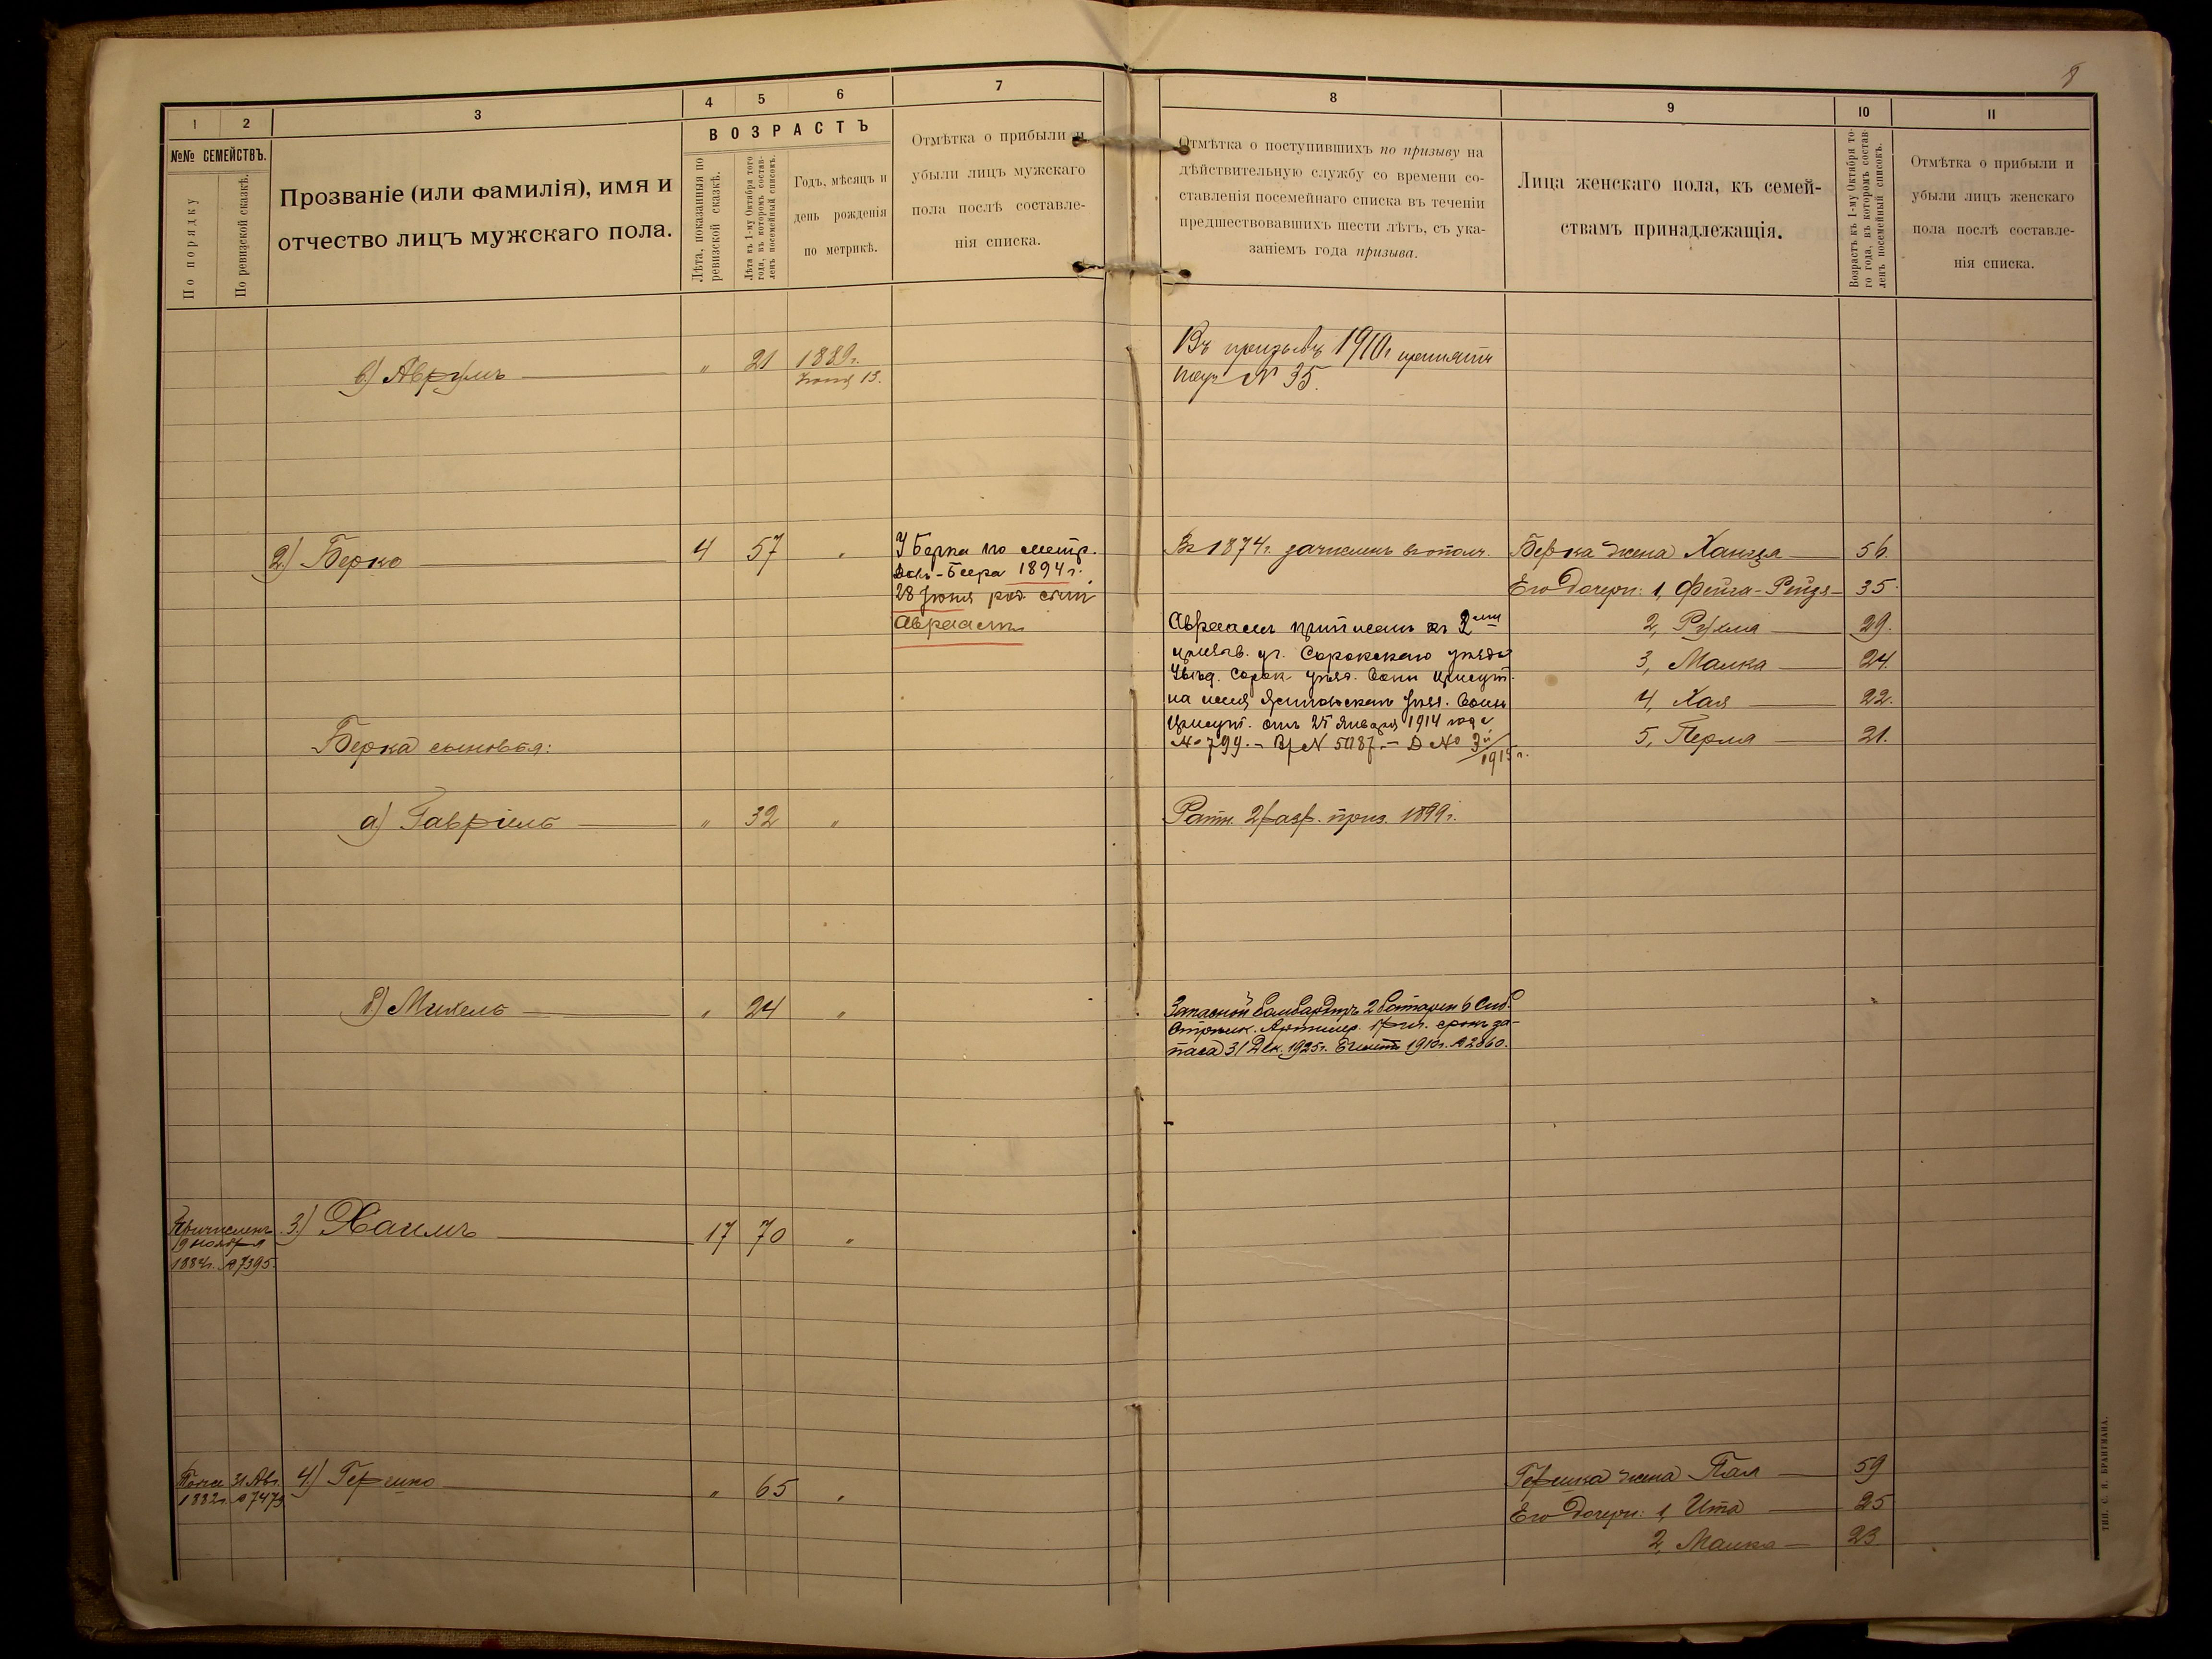 8
1 2 3 4 5 6 7 8 9 10 11
№№ СЕМЕЙСТВЪ.
По порядку
По ревизской сказкѣ.
Прозваніе (или фамилія), имя и
отчество лицъ мужскаго пола.
ВОЗРАСТЪ
Лѣта, показанныя по
ревизской сказкѣ.
Лѣта къ 1-му Октября того
года, въ которомъ состав-
ленъ посемейный списокъ.
Годъ, мѣсяцъ и
день рожденія
по метрикѣ.
Отмѣтка о прибыли и
убыли лицъ мужскаго
пола послѣ составле-
нія списка.
Отмѣтка о поступившихъ по призыву на
дѣйствительную службу со времени со-
ставленія посемейнаго списка въ теченіи
предшествовавшихъ шести лѣтъ, съ ука-
заніемъ года призыва.
Лица женскаго пола, къ семей-
ствамъ принадлежащія.
Возрастъ къ 1-му Октября то-
го года, въ которомъ состав-
ленъ посемейный списокъ.
Отмѣтка о прибыли и
убыли лицъ женскаго
пола послѣ составле-
нія списка.
в) Аврумъ " 21 1889г.
13.
Въ призывъ 1910г принятъ
№ 35.
2) Берко 4 57 "
У Берка по метр.
Беера 1894г.
28 Іюня род. сынъ
Авраамъ
Въ 1874г. зачисленъ въ ополч.
Авраамъ приписанъ къ 2му
призыв. уч. Сорокскаго уѣзда
Сорок. уѣзд. Воин. Присут.
на имя Уѣзд. Воин.
Присут. отъ 25 Января 1914 года
№ 799. - № 5087. - Д № 3
1915 г.
Берка жена Ханця 56.
Его дочери: 1, Фейга-Рейзя 35.
2, Рухля 29.
3, Малка 24.
4, Хая 22.
5, Перля 21.
Берка сыновья:
а) Гавріель " 32 "
Ратн. 2 разр. приз. 1899г.
б) Михель " 24 "
Запасной Бомбардиръ 2 батареи 6 Сиб.
Стрѣлк. Артилер. срокъ за-
паса 31 Дек. 1925г. 1910г. № 2860.
19 ноября
1884г. № 7395.
3) Хаимъ 17 70 "
Тоже 31 Авг.
1882г. № 7479
4) Гершко " 65 "
Гершка жена Пая 59
Его дочери: 1, Ита 25
2, Малка 23.
ТИП. С. Н. БРАНГМАНА.